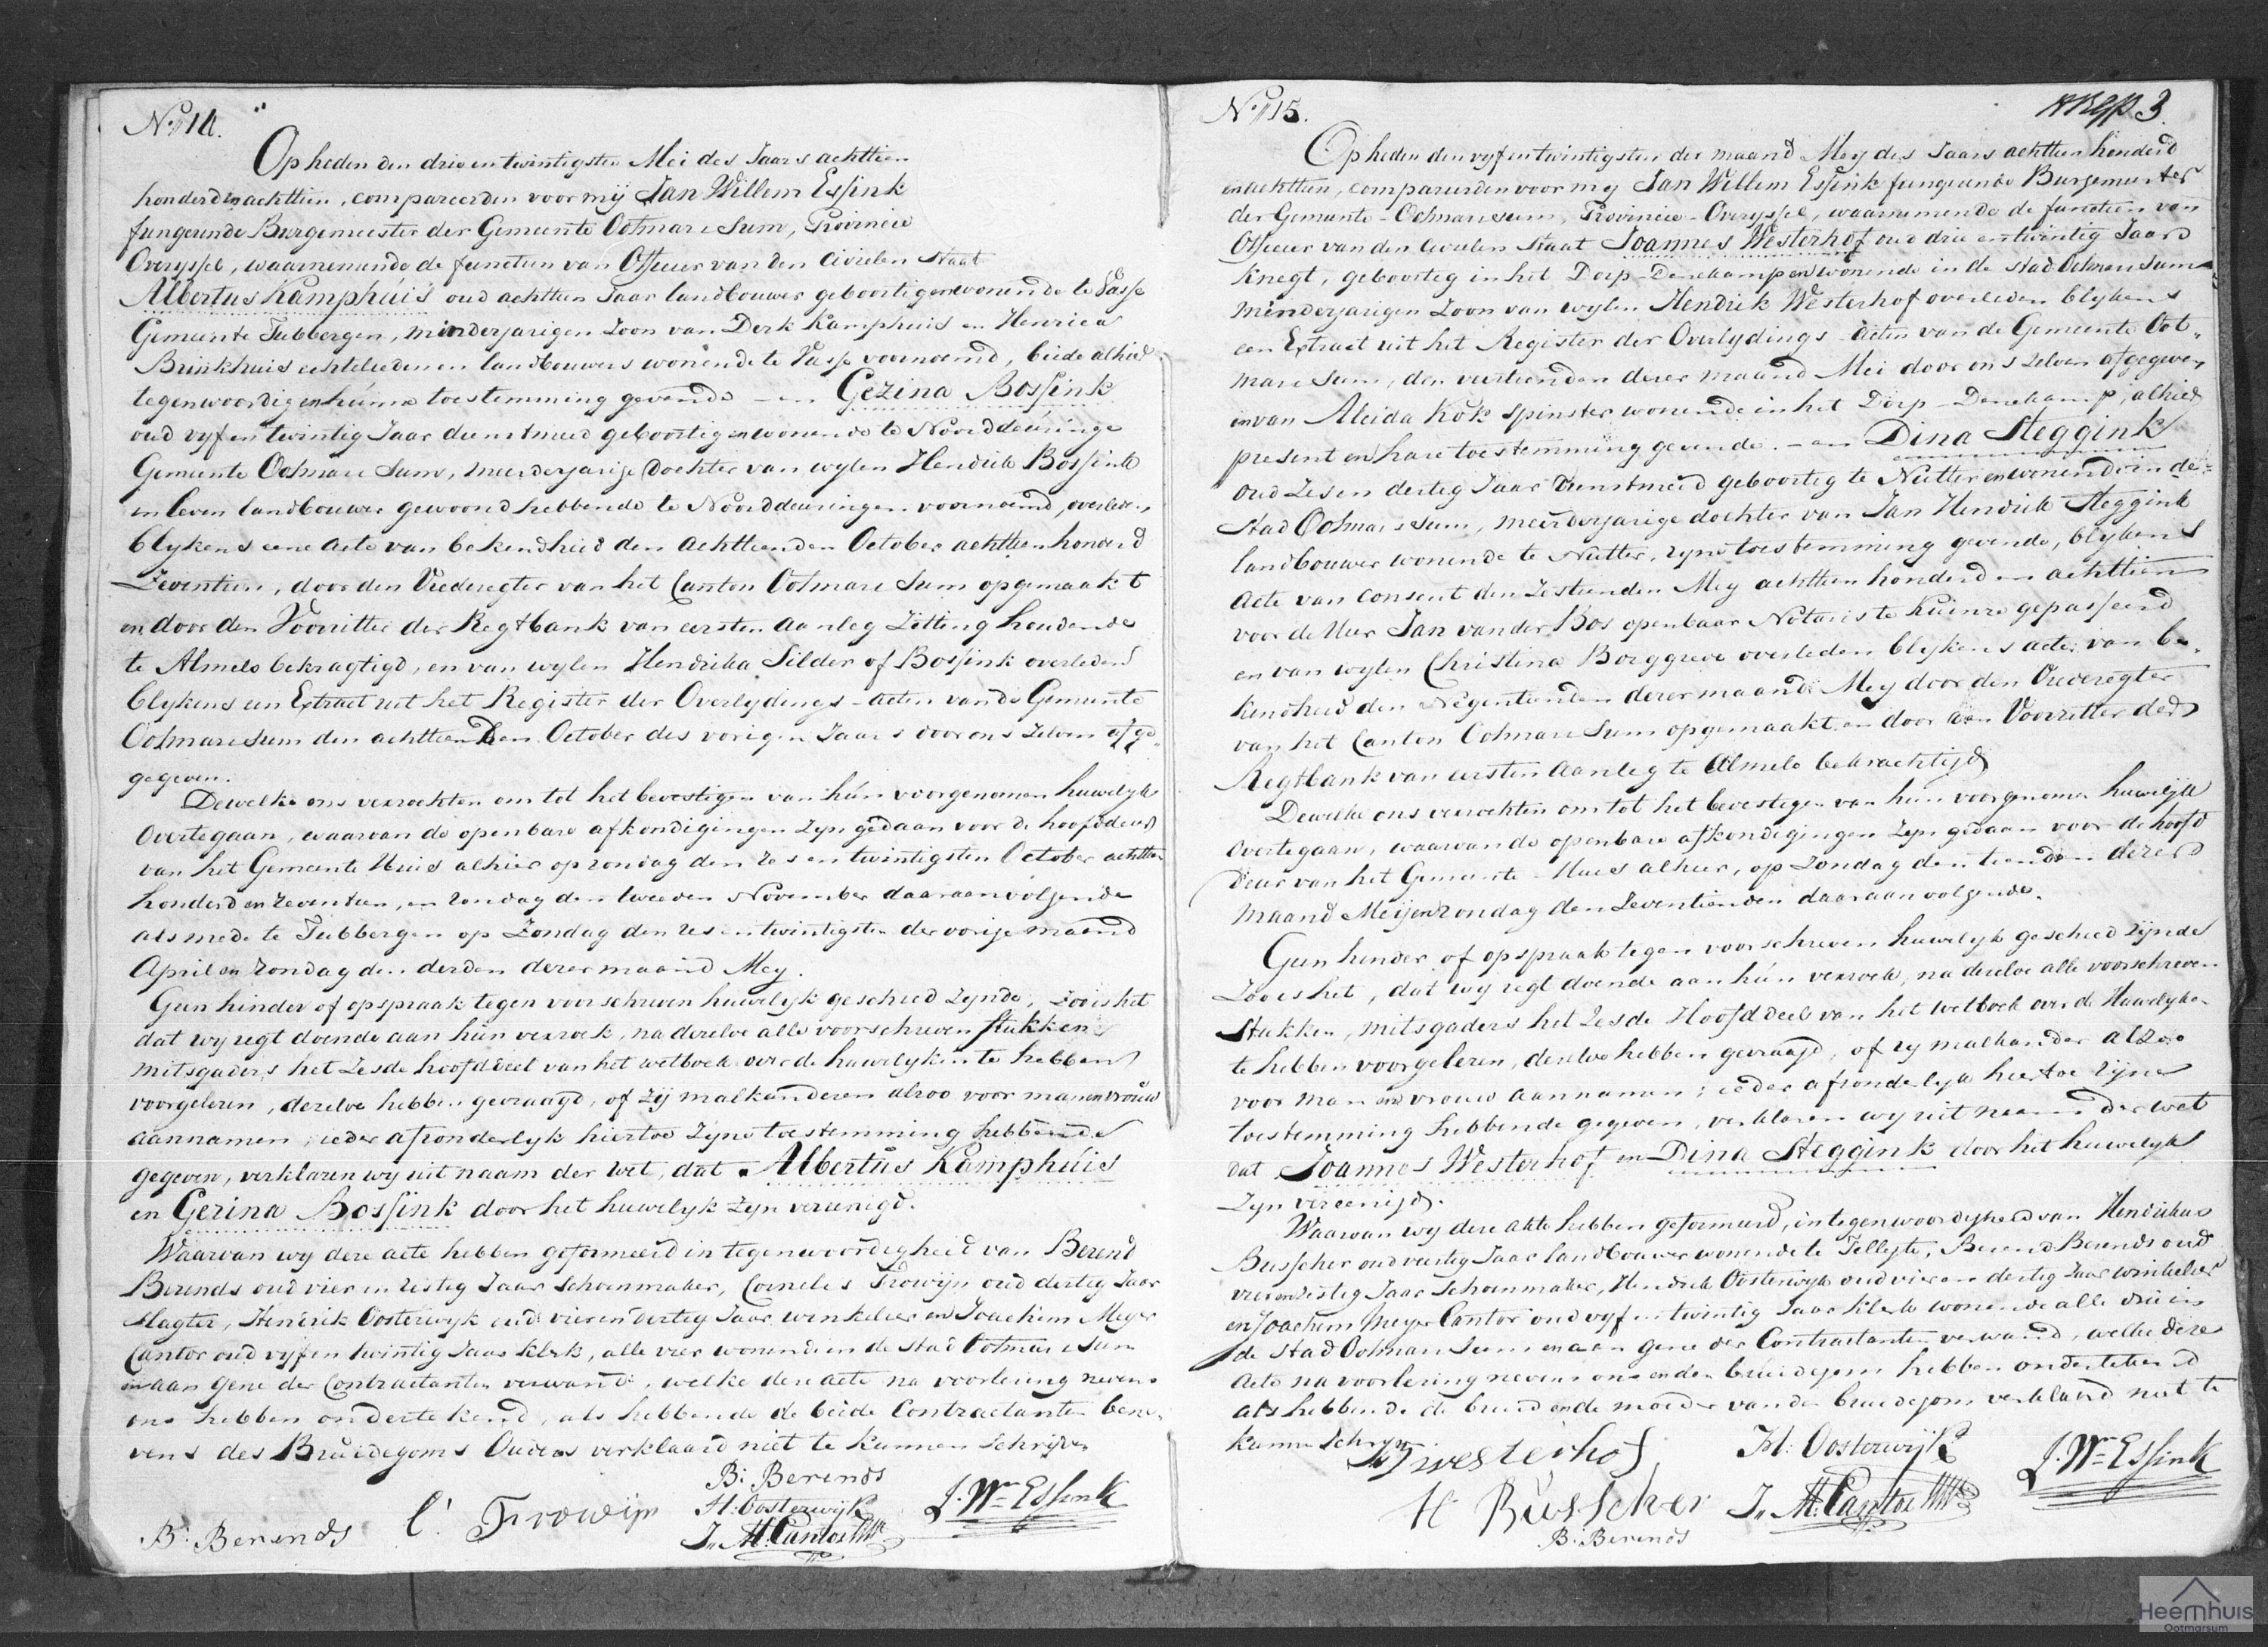 No. 14.
Op heden den drie en twintigsten Mei des Jaars achttien
honderd en achttien, compareerden voor mij Jan Willem Essink
fungerende Burgemeester der Gemeente Ootmarssum, Provincie
Overyssel, waarnemende de functien van Officier van den Civielen Staat
Albertus Kamphuis oud achttien Jaar landbouwer geboortig en wonende te Vasse
Gemeente Tubbergen, minderjarigen Zoon van Derk Kamphuis en Henrica
Brinkhuis echtelieden en landbouwers wonende te Vasse voornoemd, beide alhier
tegenwoordig en hunne toestemming gevende - en Gezina Bossink
oud vyf en twintig Jaar dienstmeid geboortig en wonende te Noorddeuringe
Gemeente Ootmarssum, meerderjarige Dochter van wylen Hendrik Bossink
in leven landbouwer gewoond hebbende te Noorddeuringen voornoemd, overleden
blykens eene acte van bekendheid den achttienden October achttien honderd
Zeventien, door den Vrederegter van het Canton Ootmarssum opgemaakt
en door den Voorzitter der Regtbank van eersten Aanleg Zitting houdende
te Almelo bekragtigd, en van wylen Hendrika Silder of Bossink overleden
blykens een Extract uit het Register der Overlydings-acten van de Gemeente
Ootmarssum den achttienden October des vorigen Jaars door ons zelven afge-
gegeven.
Dewelke ons verzochten om tot het bevestigen van hún voorgenomen huwelyk
overtegaan, waarvan de openbare afkondigingen zyn gedaan voor de hoofddeur
van het Gemeente Huis alhier op zondag den zes en twintigsten October achttien
honderd en zeventien, en zondag den tweeden November daaraanvolgende
als mede te Tubbergen op Zondag den zes en twintigsten der vorige maand
April en zondag den derden dezer maand Mey.
Geen hinder of opspraak tegen voorschreven huwelyk geschied zynde, zoo is het
dat wy regt doende aan hún verzoek, na derzelve alle voorschreven stukken
mitsgaders het Zesde hoofddeel van het wetboek over de huwelyken te hebben
voorgelezen, dezelve hebben gevraagd, of zij malkanderen alzoo voor man en vrouw
aannamen, ieder afzonderlyk hiertoe zyne toestemming hebbende
gegeven, verklaren wy uit naam der wet, dat Albertus Kamphúis
en Gezina Bossink door het huwelyk zyn vereenigd.
Waarvan wy deze acte hebben geformeerd in tegenwoordigheid van Berend
Berends oud vier en zestig Jaar Schoenmaker, Cornelis Frowijn oud dertig Jaar
Slagter, Hendrik Oosterwyk oud vier en dertig Jaar winkelier en Joachim Meyer
Cantor oud vyf en twintig Jaar klerk, alle vier wonende in de stad Ootmarssum
en aan gene der Contractanten verwand, welke deze acte na voorlezing nevens
ons hebben ondertekend, als hebbende de beide Contractanten bene-
vens des Bruidegoms Ouders verklaard niet te kunnen schrijven
B: Berends
B: Berends C: Frowijn H: Oosterwijk J. Wm Essink
J. M. Cantor
No. 15. 3
Op heden den vyf en twintigsten der maand Mey des Jaars achttien honderd
en achttien, compareerden voor my Jan Willem Essink fungerende Burgemeester
der Gemeente Ootmarssum, Provincie Overyssel, waarnemende de functien van
Officier van den Civielen Staat Joannes Westerhof oud drie en twintig Jaar
knegt, geboortig in het Dorp Denekamp en wonende in de stad Ootmarssum
minderjarigen Zoon van wylen Hendrik Westerhof overleden blykens
een Extract uit het Register der Overlydings-Acten van de Gemeente Oot-
marssum, den veertienden dezer maand Mei door ons zelven afgegeven
en van Aleida Kok Spinster wonende in het Dorp Denekamp, alhier
present en hare toestemming gevende. - en Dina Steggink
oud Zes en dertig Jaar Dienstmeid geboortig te Nutter en wonende in de
stad Ootmarssum, meerderjarige dochter van Jan Hendrik Steggink
landbouwer wonende te Nutter, zyne toestemming gevende, blykens
Acte van Consent den Zestienden Mey achttien honderd en achttien
voor de Heer Jan van der Bos openbaar Notaris te Kuinre gepasseerd
en van wylen Christina Borggreve overleden blykens acte van be-
kendheid den Negentienden dezer maand Mey door den Vrederegter
van het Canton Ootmarssum opgemaakt en door den Voorzitter der
Regtbank van eersten Aanleg te Almelo bekrachtigd
Dewelke ons verzochten om tot het bevestigen van hun voorgenomen huwelijk
overtegaan, waarvan de openbare afkondigingen zyn gedaan voor de hoofd
deur van het Gemeente Huis alhier, op Zondag den tienden dezer
maand Meij en zondag den Zeventienden daaraanvolgende.
Geen hinder of opspraak tegen voorschreven huwelyk geschied zijnde
Zoo is het, dat wy regt doende aan hún verzoek, na dezelve alle voorschreven
Stukken, mitsgaders het Zesde Hoofddeel van het wetboek over de Huwelyken
te hebben voorgelezen, dezelve hebben gevraagd, of zy malkander alzoo
voor man en vrouw aannamen; ieder afzonderlyk hiertoe zijne
toestemming hebbende gegeven, verklaren wy uit naam der wet
dat Joannes Westerhof en Dina Steggink door het huwelyk
zyn vereenigd.
Waarvan wy deze akte hebben geformeerd, in tegenwoordigheid van Hendrikus
Busscher oud veertig Jaar landbouwer wonende te Tilligte, Berend Berends oud
vier en zestig Jaar Schoenmaker, Hendrik Oosterwyk oud vier en dertig Jaar winkelier
en Joachim Meyer Cantor oud vyf en twintig Jaar klerk wonende alle drie in
de stad Ootmarssum en aan gene der Contractanten verwand, welke deze
Acte na voorlezing nevens ons en den bruidegom hebben ondertekend
als hebbende de bruid en de moeder van den bruidegom verklaard niet te
kunnen schryven
J westerhof H: Oosterwijk J. Wm Essink
H Busscher J. M. Cantor
B: Berends
Heemhuis
Ootmarsum